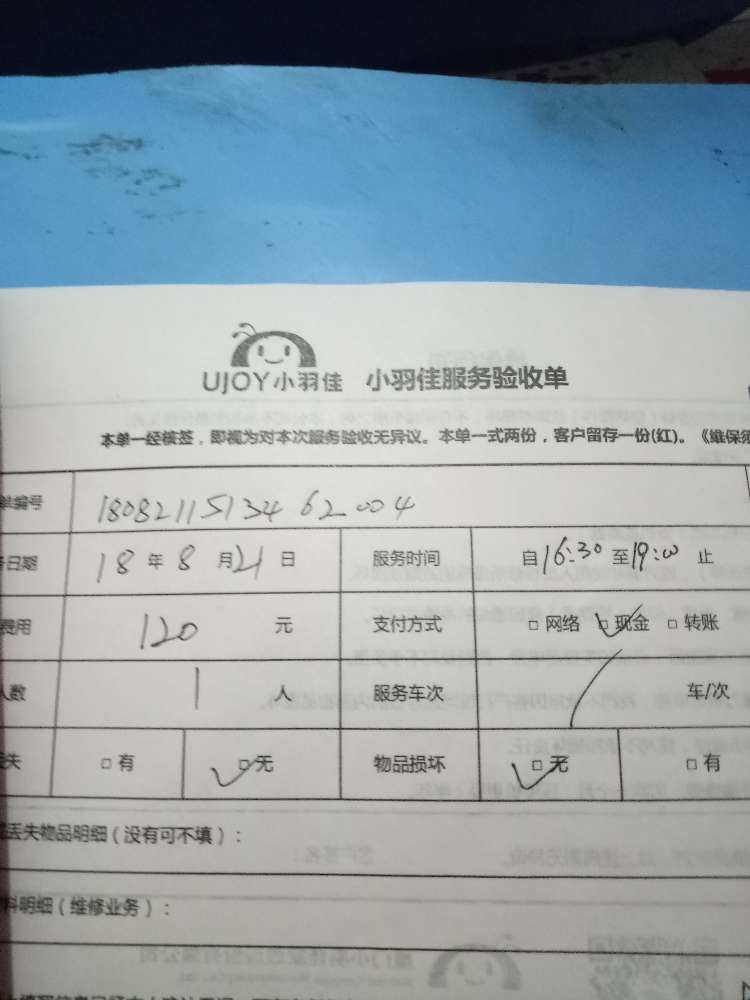 UJOY小羽佳 小羽佳服务验收单
本单一经核签，即视为对本次服务验收无异议。本单一式两份，客户留存一份(红)。《维保须
单编号 1808211513462004
日期 18 年 8 月 21 日 服务时间 自16:30 至19:00 止
费用 120 元 支付方式 □网络 □现金 □转账
人数 1 人 服务车次 / 车/次
失 □有 □无 物品损坏 □无 □有
丢失物品明细（没有可不填）：
料明细（维修业务）：